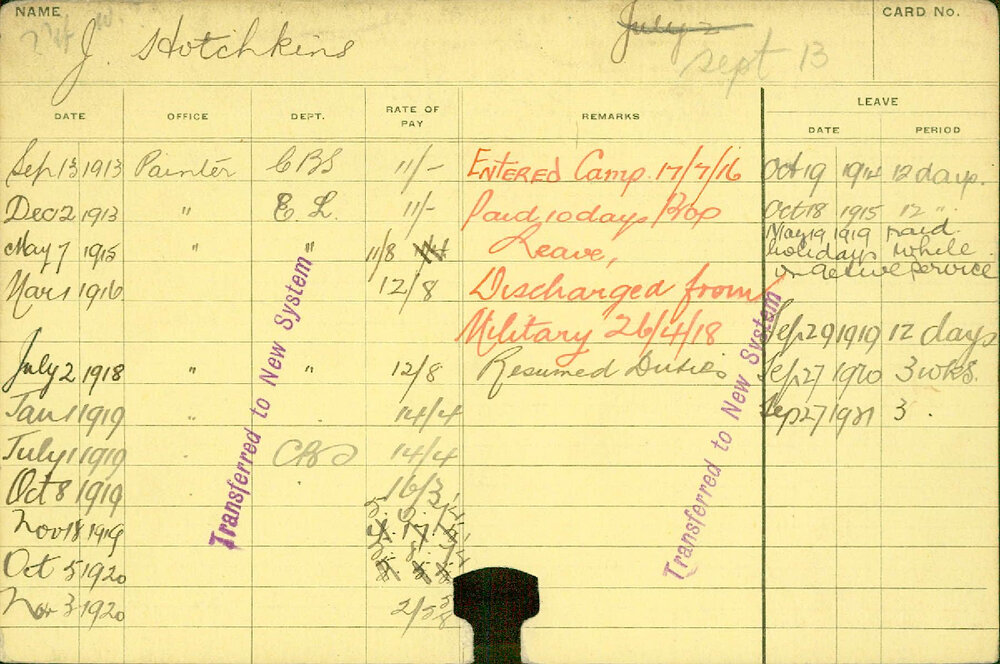 NAME
CARD No.
J. Hotchkins
July 2
Sept 13
DATE OFFICE DEPT. RATE OF PAY REMARKS LEAVE
DATE PERIOD
Sep 13 1913 Painter CBS 11/- Entered Camp. 17/7/16 Oct 19 1914 12 days.
Dec 2 1913 " E. L. 11/- Paid 10 days Prop Oct 18 1915 12 ".
May 7 1915 " " 11/8 Leave, May 19 1919 paid
holidays while
on active service
Mar 1 1916 12/8 Discharged from
Military 26/4/18 Sep 29 1919 12 days
July 2 1918 " " 12/8 Resumed Duties Sep 27 1920 3 wks.
Jan 1 1919 " 14/4 Sep 27 1921 3 .
July 1 1919 14/4
Oct 8 1919 16/3
Nov 18 1919
Oct 5 1920
Nov 3 1920
Transferred to New System
Transferred to New System